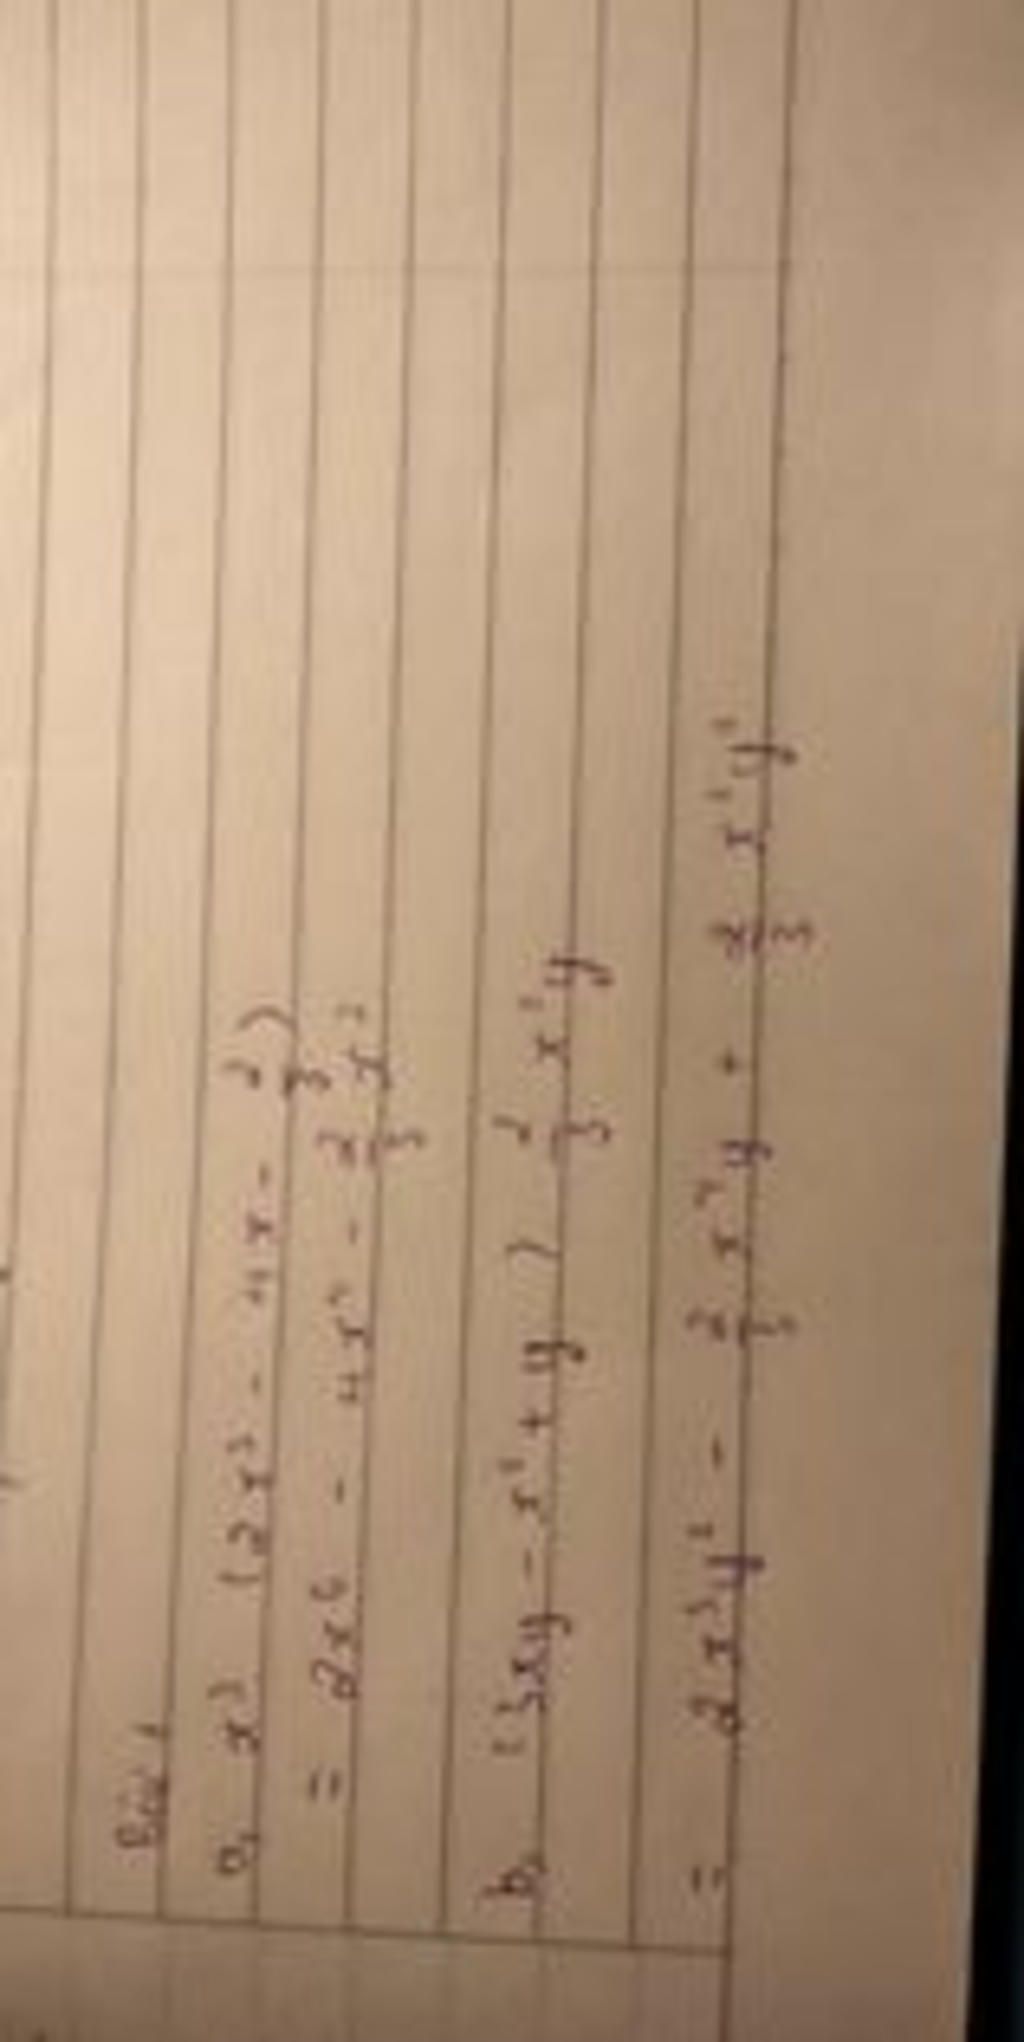 Bài 1
a, x³ (2x³ - 4x - 2/3)
= 2x⁶ - 4x⁴ - 2/3 x³
b, (3xy - x² + y) 2/3 x²y
= 2x³y² - 2/3 x⁴y + 2/3 x²y²